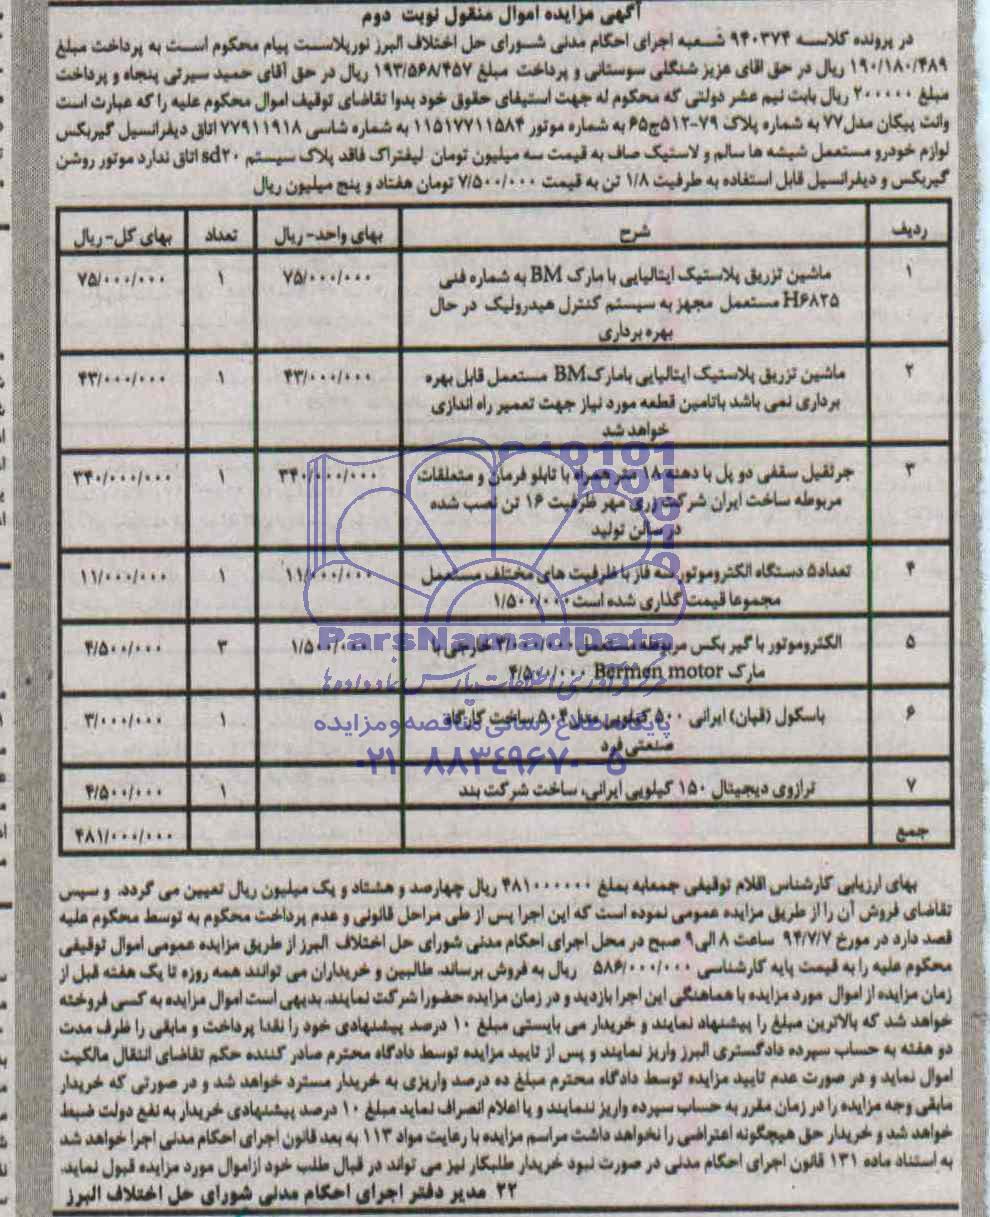 آگهی مزایده اموال منقول نوبت دوم
در پرونده کلاسه ۹۴۰۳۷۴ شعبه اجرای احکام مدنی شورای حل اختلاف البرز نورپلاست پیام محکوم است به پرداخت مبلغ
۱۹۰/۱۸۰/۴۸۹ ریال در حق اقای عزیز شنگلی سوستانی و پرداخت مبلغ ۱۹۳/۵۶۸/۴۵۷ ریال در حق آقای حمید سیرتی پنجاه و پرداخت
مبلغ ۲۰۰۰۰۰ ریال بابت نیم عشر دولتی که محکوم له جهت استیفای حقوق خود بدوا تقاضای توقیف اموال محکوم علیه را که عبارت است
وانت پیکان مدل۷۷ به شماره پلاک ۷۹-۵۱۲ج۶۵ به شماره موتور ۱۱۵۱۷۷۱۱۵۸۴ به شماره شاسی ۷۷۹۱۱۹۱۸ اتاق دیفرانسیل گیربکس
لوازم خودرو مستعمل شیشه ها سالم و لاستیک صاف به قیمت سه میلیون تومان لیفتراک فاقد پلاک سیستم sd۲۰ اتاق ندارد موتور روشن
گیربکس و دیفرانسیل قابل استفاده به ظرفیت ۱/۸ تن به قیمت ۷/۵۰۰/۰۰۰ تومان هفتاد و پنج میلیون ریال
ردیف شرح بهای واحد- ریال تعداد بهای کل- ریال
۱ ماشین تزریق پلاستیک ایتالیایی با مارک BM به شماره فنی ۷۵/۰۰۰/۰۰۰ ۱ ۷۵/۰۰۰/۰۰۰
H۶۸۲۵ مستعمل مجهز به سیستم کنترل هیدرولیک در حال
بهره برداری
۲ ماشین تزریق پلاستیک ایتالیایی بامارکBM مستعمل قابل بهره ۴۳/۰۰۰/۰۰۰ ۱ ۴۳/۰۰۰/۰۰۰
برداری نمی باشد باتامین قطعه مورد نیاز جهت تعمیر راه اندازی
خواهد شد
۳ جرثقیل سقفی دو پل با دهنه ۱۸ متر همراه با تابلو فرمان و متعلقات ۳۴۰/۰۰۰/۰۰۰ ۱ ۳۴۰/۰۰۰/۰۰۰
مربوطه ساخت ایران شرکت زری مهر ظرفیت ۱۶ تن نصب شده
در سالن تولید
۴ تعداد۵ دستگاه الکتروموتور سه فاز با ظرفیت های مختلف مستعمل ۱۱/۰۰۰/۰۰۰ ۱ ۱۱/۰۰۰/۰۰۰
مجموعا قیمت گذاری شده است ۱/۵۰۰/۰۰۰
۵ الکتروموتور با گیر بکس مربوطه مستعمل ۳/۰۰۰/۰۰۰ خارجی با ۱/۵۰۰/۰۰۰ ۳ ۴/۵۰۰/۰۰۰
مارک Bermen motor ۴/۵۰۰/۰۰۰
۶ باسکول (قپان) ایرانی ۵۰۰ کیلویی مدل ۵۰۴ ساخت کارگاه ۱ ۳/۰۰۰/۰۰۰
صنعتی فرد
۷ ترازوی دیجیتال ۱۵۰ گیلویی ایرانی، ساخت شرکت بند ۱ ۴/۵۰۰/۰۰۰
جمع ۴۸۱/۰۰۰/۰۰۰
ParsNamadData
پایگاه اطلاع رسانی مناقصه و مزایده
۰۲۱-۸۸۳۴۹۶۷۰-۵
بهای ارزیابی کارشناس اقلام توقیفی جمعابه بمبلغ ۴۸۱۰۰۰۰۰۰ ریال چهارصد و هشتاد و یک میلیون ریال تعیین می گردد. و سپس
تقاضای فروش آن را از طریق مزایده عمومی نموده است که این اجرا پس از طی مراحل قانونی و عدم پرداخت محکوم به توسط محکوم علیه
قصد دارد در مورخ ۹۴/۷/۷ ساعت ۸ الی۹ صبح در محل اجرای احکام مدنی شورای حل اختلاف البرز از طریق مزایده عمومی اموال توقیفی
محکوم علیه را به قیمت پایه کارشناسی ۵۸۶/۰۰۰/۰۰۰ ریال به فروش برساند. طالبین و خریداران می توانند همه روزه تا یک هفته قبل از
زمان مزایده از اموال مورد مزایده با هماهنگی این اجرا بازدید و در زمان مزایده حضورا شرکت نمایند. بدیهی است اموال مزایده به کسی فروخته
خواهد شد که بالاترین مبلغ را پیشنهاد نمایند و خریدار می بایستی مبلغ ۱۰ درصد پیشنهادی خود را نقدا پرداخت و مابقی را ظرف مدت
دو هفته به حساب سپرده دادگستری البرز واریز نمایند و پس از تایید مزایده توسط دادگاه محترم صادر کننده حکم تقاضای انتقال مالکیت
اموال نماید و در صورت عدم تایید مزایده توسط دادگاه محترم مبلغ ده درصد واریزی به خریدار مسترد خواهد شد و در صورتی که خریدار
مابقی وجه مزایده را در زمان مقرر به حساب سپرده واریز ننمایند و یا اعلام انصراف نماید مبلغ ۱۰ درصد پیشنهادی خریدار به نفع دولت ضبط
خواهد شد و خریدار حق هیچگونه اعتراضی را نخواهد داشت مراسم مزایده با رعایت مواد ۱۱۳ به بعد قانون اجرای احکام مدنی اجرا خواهد شد
به استناد ماده ۱۳۱ قانون اجرای احکام مدنی در صورت نبود خریدار طلبکار نیز می تواند در قبال طلب خود ازاموال مورد مزایده قبول نماید.
۲۲ مدیر دفتر اجرای احکام مدنی شورای حل اختلاف البرز